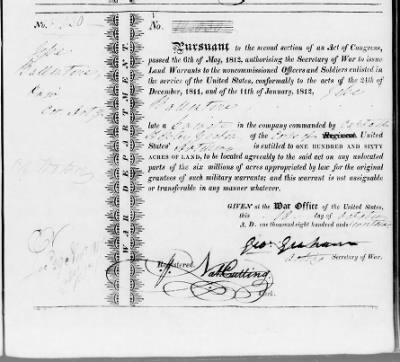 No.
No.
Pursuant to the second section of an Act of Congress,
passed the 6th of May, 1812, authorising the Secretary of War to issue
Land Warrants to the noncommissioned Officers and Soldiers enlisted in
the service of the United States, conformably to the acts of the 24th of
December, 1811, and of the 11th of January, 1812, John
Ballentine
late a in the company commanded by
of the Regiment, United
States' Artillery is entitled to ONE HUNDRED AND SIXTY
ACRES OF LAND, to be located agreeably to the said act on any unlocated
parts of the six millions of acres appropriated by law for the original
grantees of such military warrants; and this warrant is not assignable
or transferable in any manner whatever.
GIVEN at the War Office of the United States,
this 18 day of October
A. D. one thousand eight hundred and
Geo: Graham
Secretary of War.
Registered
Nat. Cutting
Clerk.
WAR DEPARTMENT
Ballentine